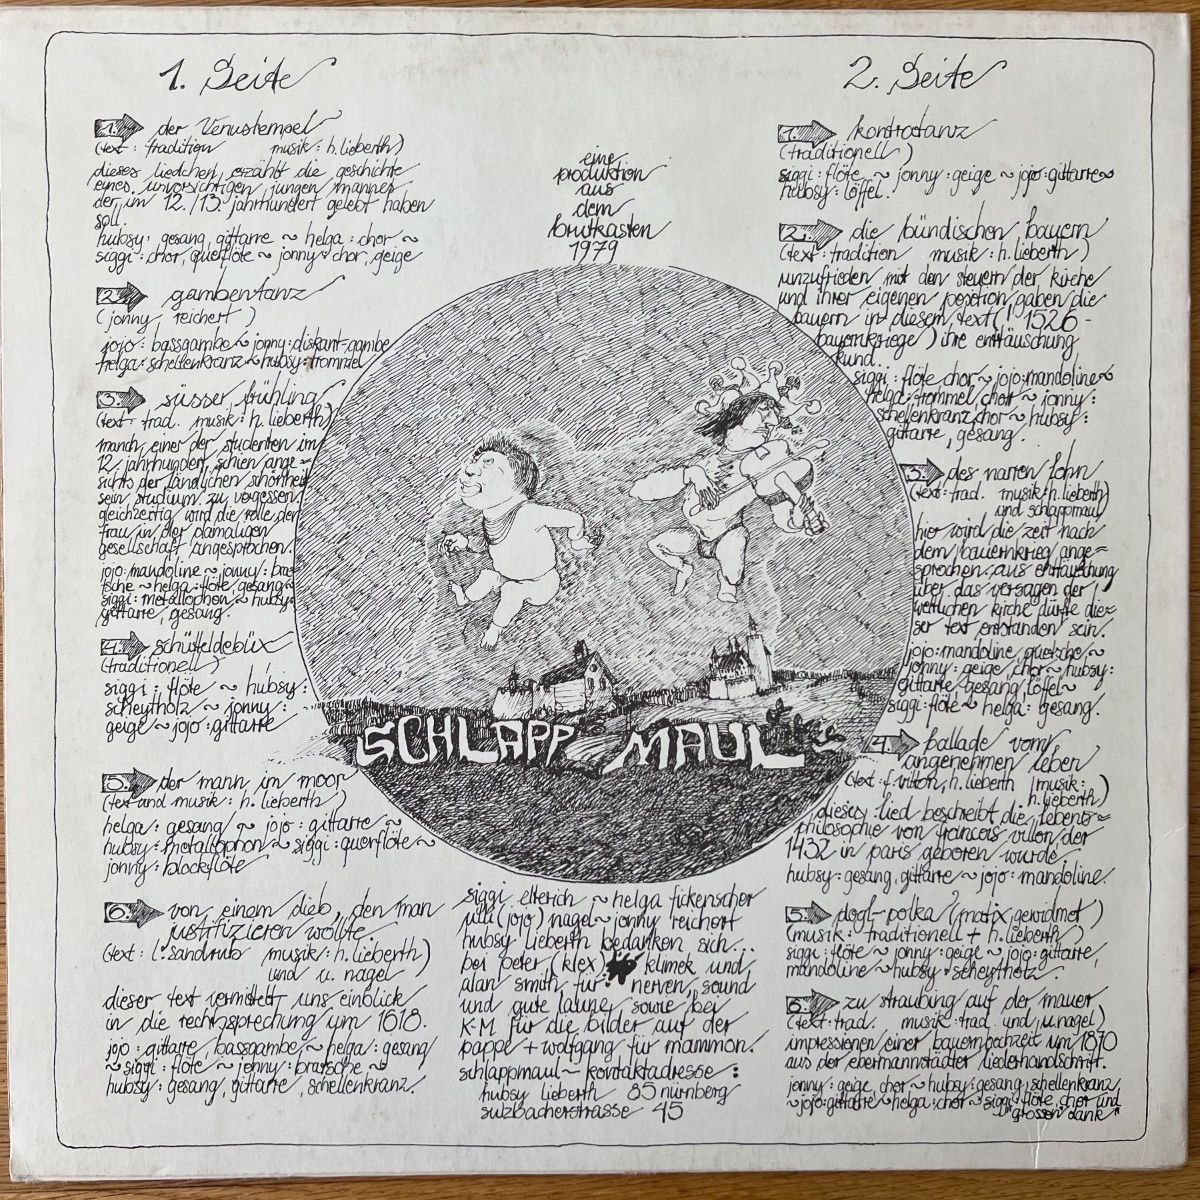 1. Seite
1. der Venustempel
(text: tradition musik: h. lieberth)
dieses liedchen erzählt die geschichte
eines unvorsichtigen jungen mannes
der im 12./13. jahrhundert gelebt haben
soll.
hubsy: gesang, gittarre ~ helga: chor ~
siggi: chor, querflöte ~ jonny: chor, geige
2. gambentanz
(jonny reichert)
jojo: bassgambe ~ jonny: diskant-gambe
helga: schellenkranz ~ hubsy: trommel
3. süsser frühling
(text: trad. musik: h. lieberth)
manch einer der studenten im
12. jahrhundert, schien ange=
sichts der ländlichen schönheit
sein studium zu vergessen.
gleichzeitig wird die rolle der
frau in der damaligen
gesellschaft angesprochen.
jojo: mandoline ~ jonny: brat
sche ~ helga: flöte, gesang ~
siggi: metallophon ~ hubsy:
gittarre, gesang.
4. schüttldebüx
(traditionell)
siggi: flöte ~ hubsy:
scheytholz ~ jonny:
geige ~ jojo: gittarre
5. der mann im moor
(text und musik: h. lieberth)
helga: gesang ~ jojo: gittarre ~
hubsy: metallophon ~ siggi: querflöte ~
jonny: blockflöte
6. von einem dieb, den man
justifizieren wollte.
(text: l. sandrub musik: h. lieberth)
und u. nagel
dieser text vermittelt uns einblick
in die rechtsprechung um 1618.
jojo: gittarre, bassgambe, ~ helga: gesang
~ siggi: flöte ~ jonny: bratsche ~
hubsy: gesang, gittarre, schellenkranz.
eine
produktion
aus
dem
brutkasten
1979
SCHLAPP MAUL
siggi elterich ~ helga fickenscher
ulli (jojo) nagel ~ jonny reichert
hubsy lieberth bedanken sich...
bei peter (klex) klimek und
alan smith für nerven, sound
und gute laune, sowie bei
K-M für die bilder auf der
pappe + wolfgang für mammon.
schlappmaul ~ kontaktadresse:
hubsy lieberth 85 nürnberg
sulzbacherstrasse 45
2. Seite
1. kontratanz
(traditionell)
siggi: flöte ~ jonny: geige ~ jojo: gittarre ~
hubsy: löffel.
2. die bündischen bauern
(text: tradition musik: h. lieberth)
unzufrieden mit den steuern der kirche
und ihrer eigenen position, gaben die
bauern in diesem text (1526 -
bauernkriege) ihre enttäuschung
kund.
siggi: flöte, chor ~ jojo: mandoline ~
helga: trommel, chor ~ jonny:
schellenkranz, chor ~ hubsy:
gittarre, gesang.
3. des narren lohn
(text: trad. musik: h. lieberth)
und schlappmaul
hier wird die zeit nach
dem bauernkrieg ange=
sprochen. aus enttäuschung
über das versagen der
weltlichen kirche dürfte die=
ser text entstanden sein.
jojo: mandoline, quetsche ~
jonny: geige, chor ~ hubsy:
gittarre, gesang, löffel ~
siggi: flöte ~ helga: gesang.
4. ballade vom
angenehmen leben
(text: f. villon, h. lieberth musik:
h. lieberth)
dieses lied beschreibt die lebens=
philosophie von francois villon, der
1432 in paris geboren wurde.
hubsy: gesang, gittarre ~ jojo: mandoline.
5. dogl-polka (matix gewidmet)
(musik: traditionell + h. lieberth)
siggi: flöte ~ jonny: geige ~ jojo: gittarre,
mandoline ~ hubsy: scheytholz.
6. zu straubing auf der mauer
(text: trad. musik: trad. und u. nagel)
impressionen einer bauernhochzeit um 1870
aus der ebermannstädter liederhandschrift.
jonny: geige, chor ~ hubsy: gesang, schellenkranz
~ jojo: gittarre ~ helga: chor ~ siggi: flöte, chor und
"grossen dank"